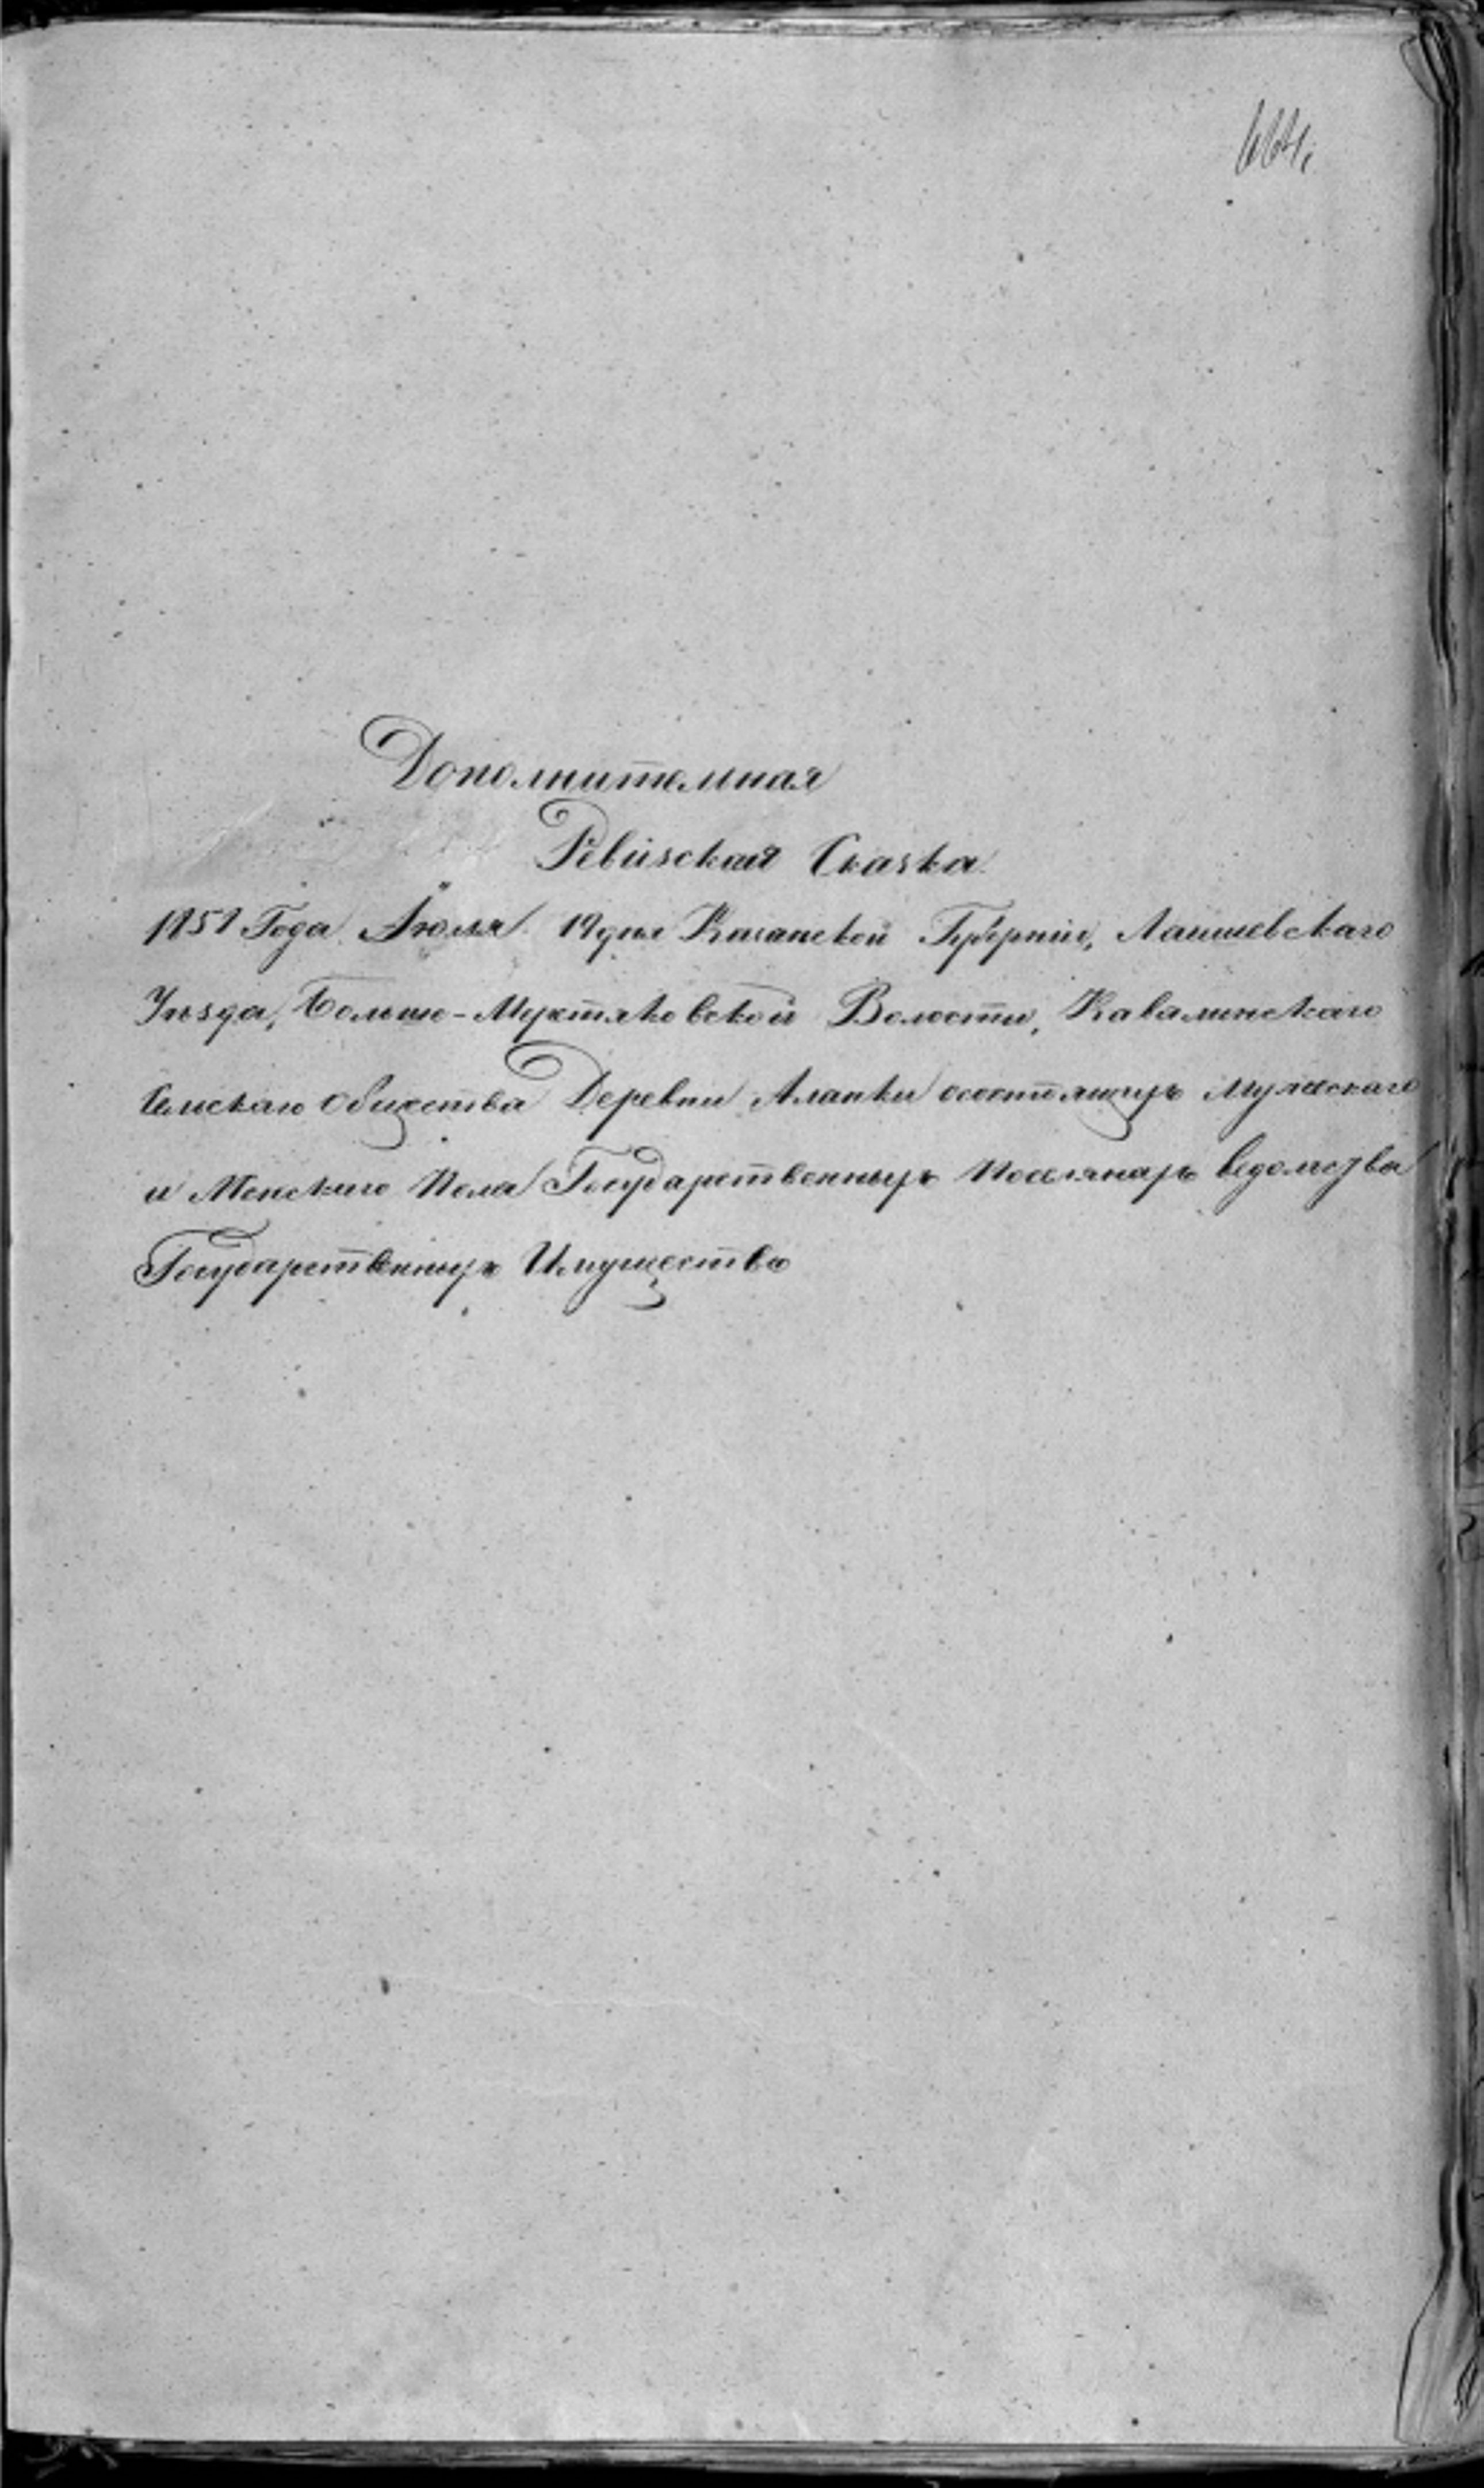 664.
Дополнительная
Ревизская Сказка.
1851 Года Июля 19 дня Казанской Губерніи, Лаишевскаго
Уѣзда, Больше-Меретяковской Волости, Кавалинскаго
Сельскаго Общества Деревни Алапки о состоящихъ Мужескаго
и Женскаго Пола Государственныхъ Поселянахъ ведомства
Государственныхъ Имуществъ